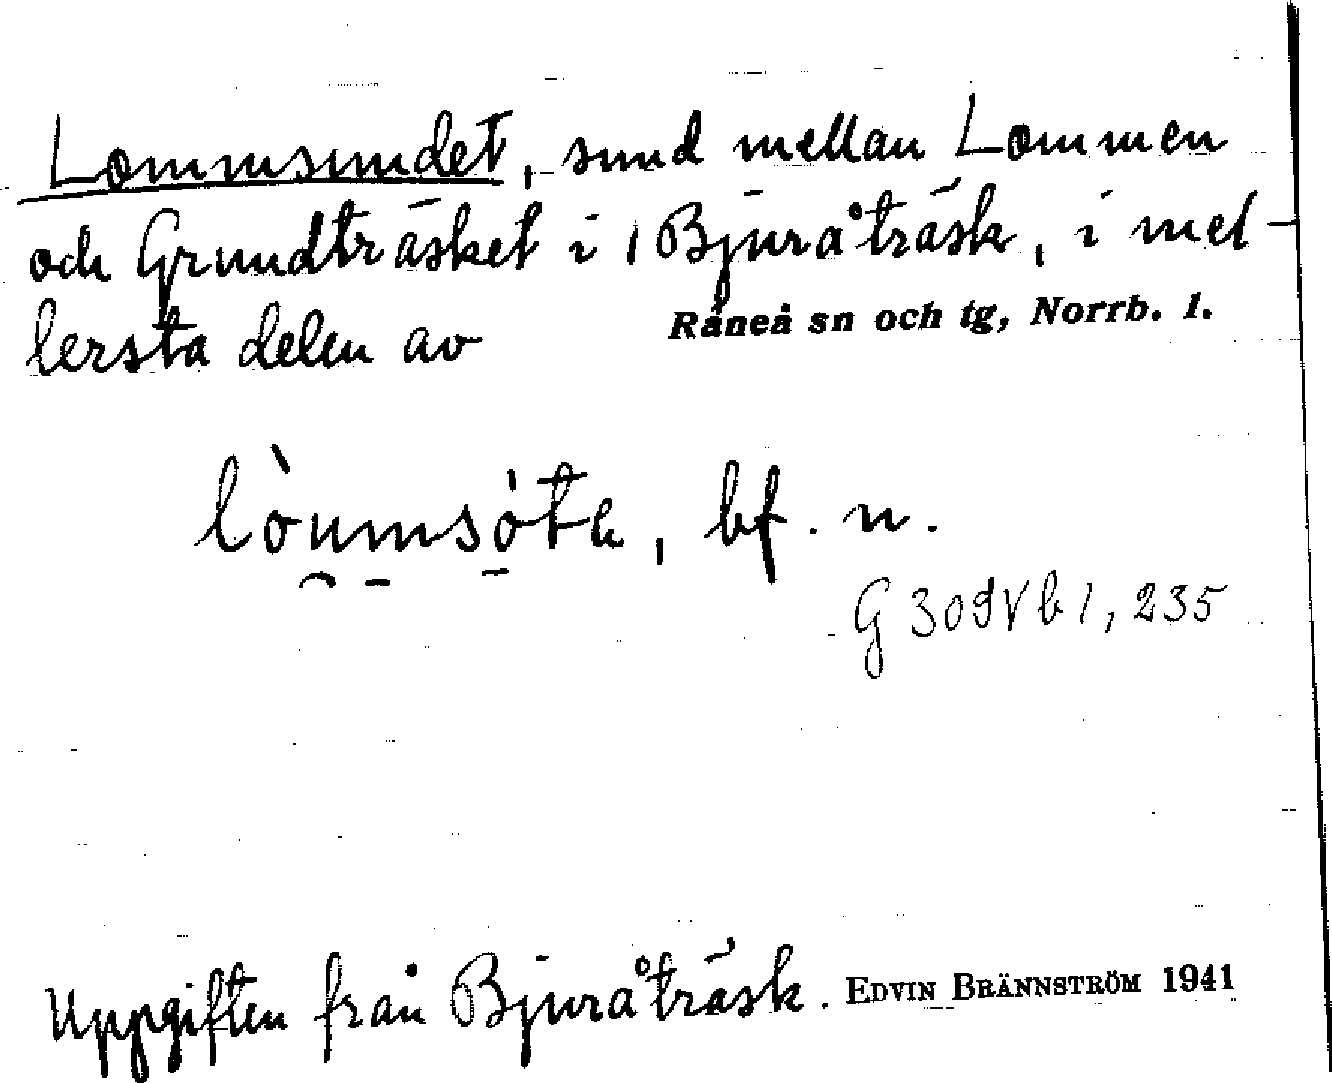 Lommsundet, sund mellan Lommen
och Grundträsket i Bjuråträsk, i mel-
lersta delen av Råneå sn och tg, Norrb. l.
bf. n.
G 309 V b 1, 235
Uppgiften från Bjuråträsk. EDVIN BRÄNNSTRÖM 1941